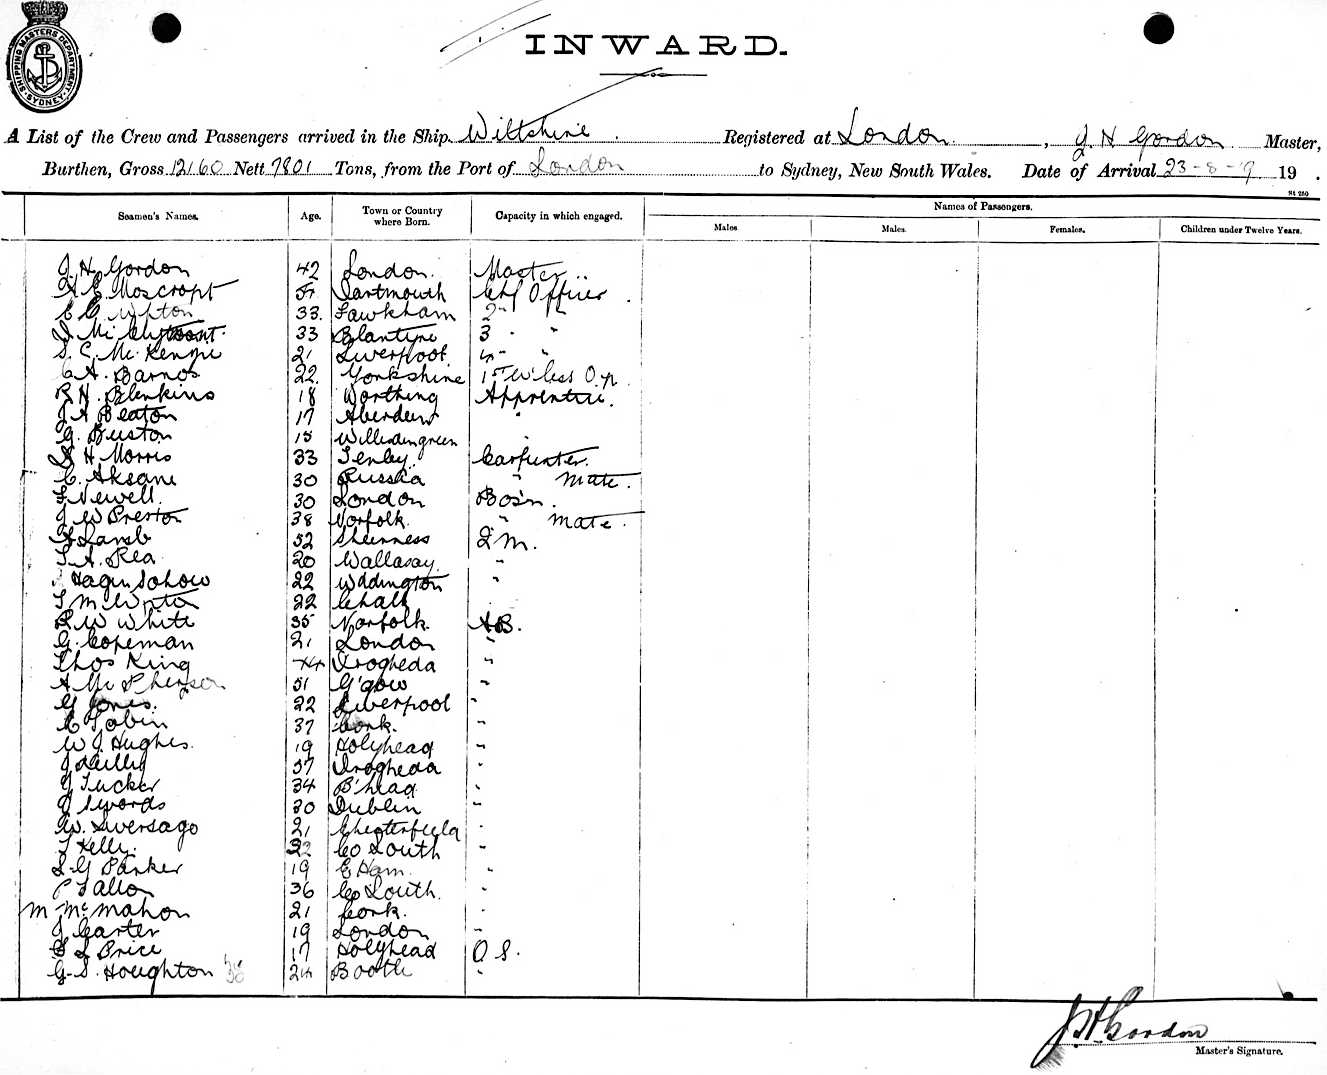 SHIPPING MASTERS DEPARTMENT SYDNEY
INWARD.
A List of the Crew and Passengers arrived in the Ship Wiltshire Registered at London, J H Gordon Master,
Burthen, Gross 12160 Nett 7801 Tons, from the Port of London to Sydney, New South Wales. Date of Arrival 23-8-19 19 .
St 250
Seamen's Names. Age. Town or Country where Born. Capacity in which engaged. Names of Passengers.
Males Males. Females. Children under Twelve Years.
J. H. Gordon 42 London. Master
A E Moscropt Dartmouth Chf Officer
C C Upton 33. Fawkham 2nd "
33 Blantyre 3 " "
S. C. Mc Kenzie 21 Liverpool. 4 " "
C A. Barnes 22. Yorkshire 1st W'less Op.
R H. Blenkins 18 Worthing Apprentice.
J A Beaton 17 Aberdeen "
G. Buston 15 Willesdengreen
H Morris 33 Tenby. Carpenter.
C. Aksani 30 Russia " mate.
F Newell. 30 London Bos'n.
J W Preston 38 Norfolk. " mate.
A Lamb 52 Sheerness Q M.
T. A. Rea 20 Wallasay. "
22 Waddington "
T M Upton 22 Chalk
R W White 35 Norfolk. AB.
G. Copeman 21 London "
Thos King Drogheda "
A Mc Pherson 51 G'gow "
G Jones. 22 Liverpool "
C Tobin 37 Cork. "
W J. Hughes. 19 Holyhead "
J Reilly 37 Drogheda "
J Tucker 34 B'head "
J Swords 30 Dublin "
W. Swersago 21 Chesterfield "
T Kelly. 32 Co Louth "
S. G Parker 19 E Ham. "
P Fallon 36 Co Louth. "
M McMahon 21 Cork. "
J Carter 19 London "
L Price 17 Holyhead O S.
G. S. Houghton 24 Bootle "
J. H. Gordon
Master's Signature.